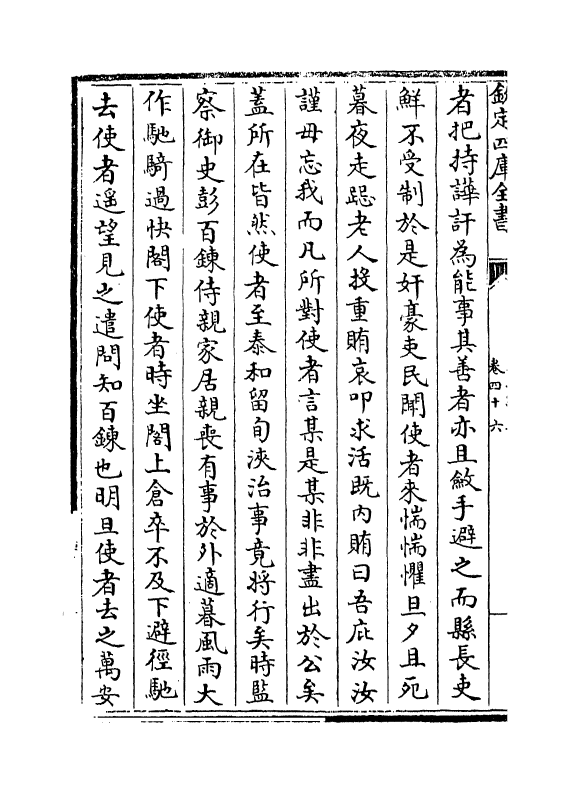 欽定四庫全書
卷四十六
者把持譁訐為能事其善者亦且斂手避之而縣長吏
鮮不受制於是奸豪吏民聞使者來惴惴懼旦夕且死
暮夜走跽老人投重賄哀叩求活既内賄曰吾庇汝汝
謹毋忘我而凡所對使者言某是某非非盡出於公矣
葢所在皆然使者至泰和留旬浹治事竟將行矣時監
察御史彭百鍊侍親家居親喪有事於外適暮風雨大
作馳騎過快閣下使者時坐閣上倉卒不及下避徑馳
去使者遥望見之遣問知百鍊也明旦使者去之萬安